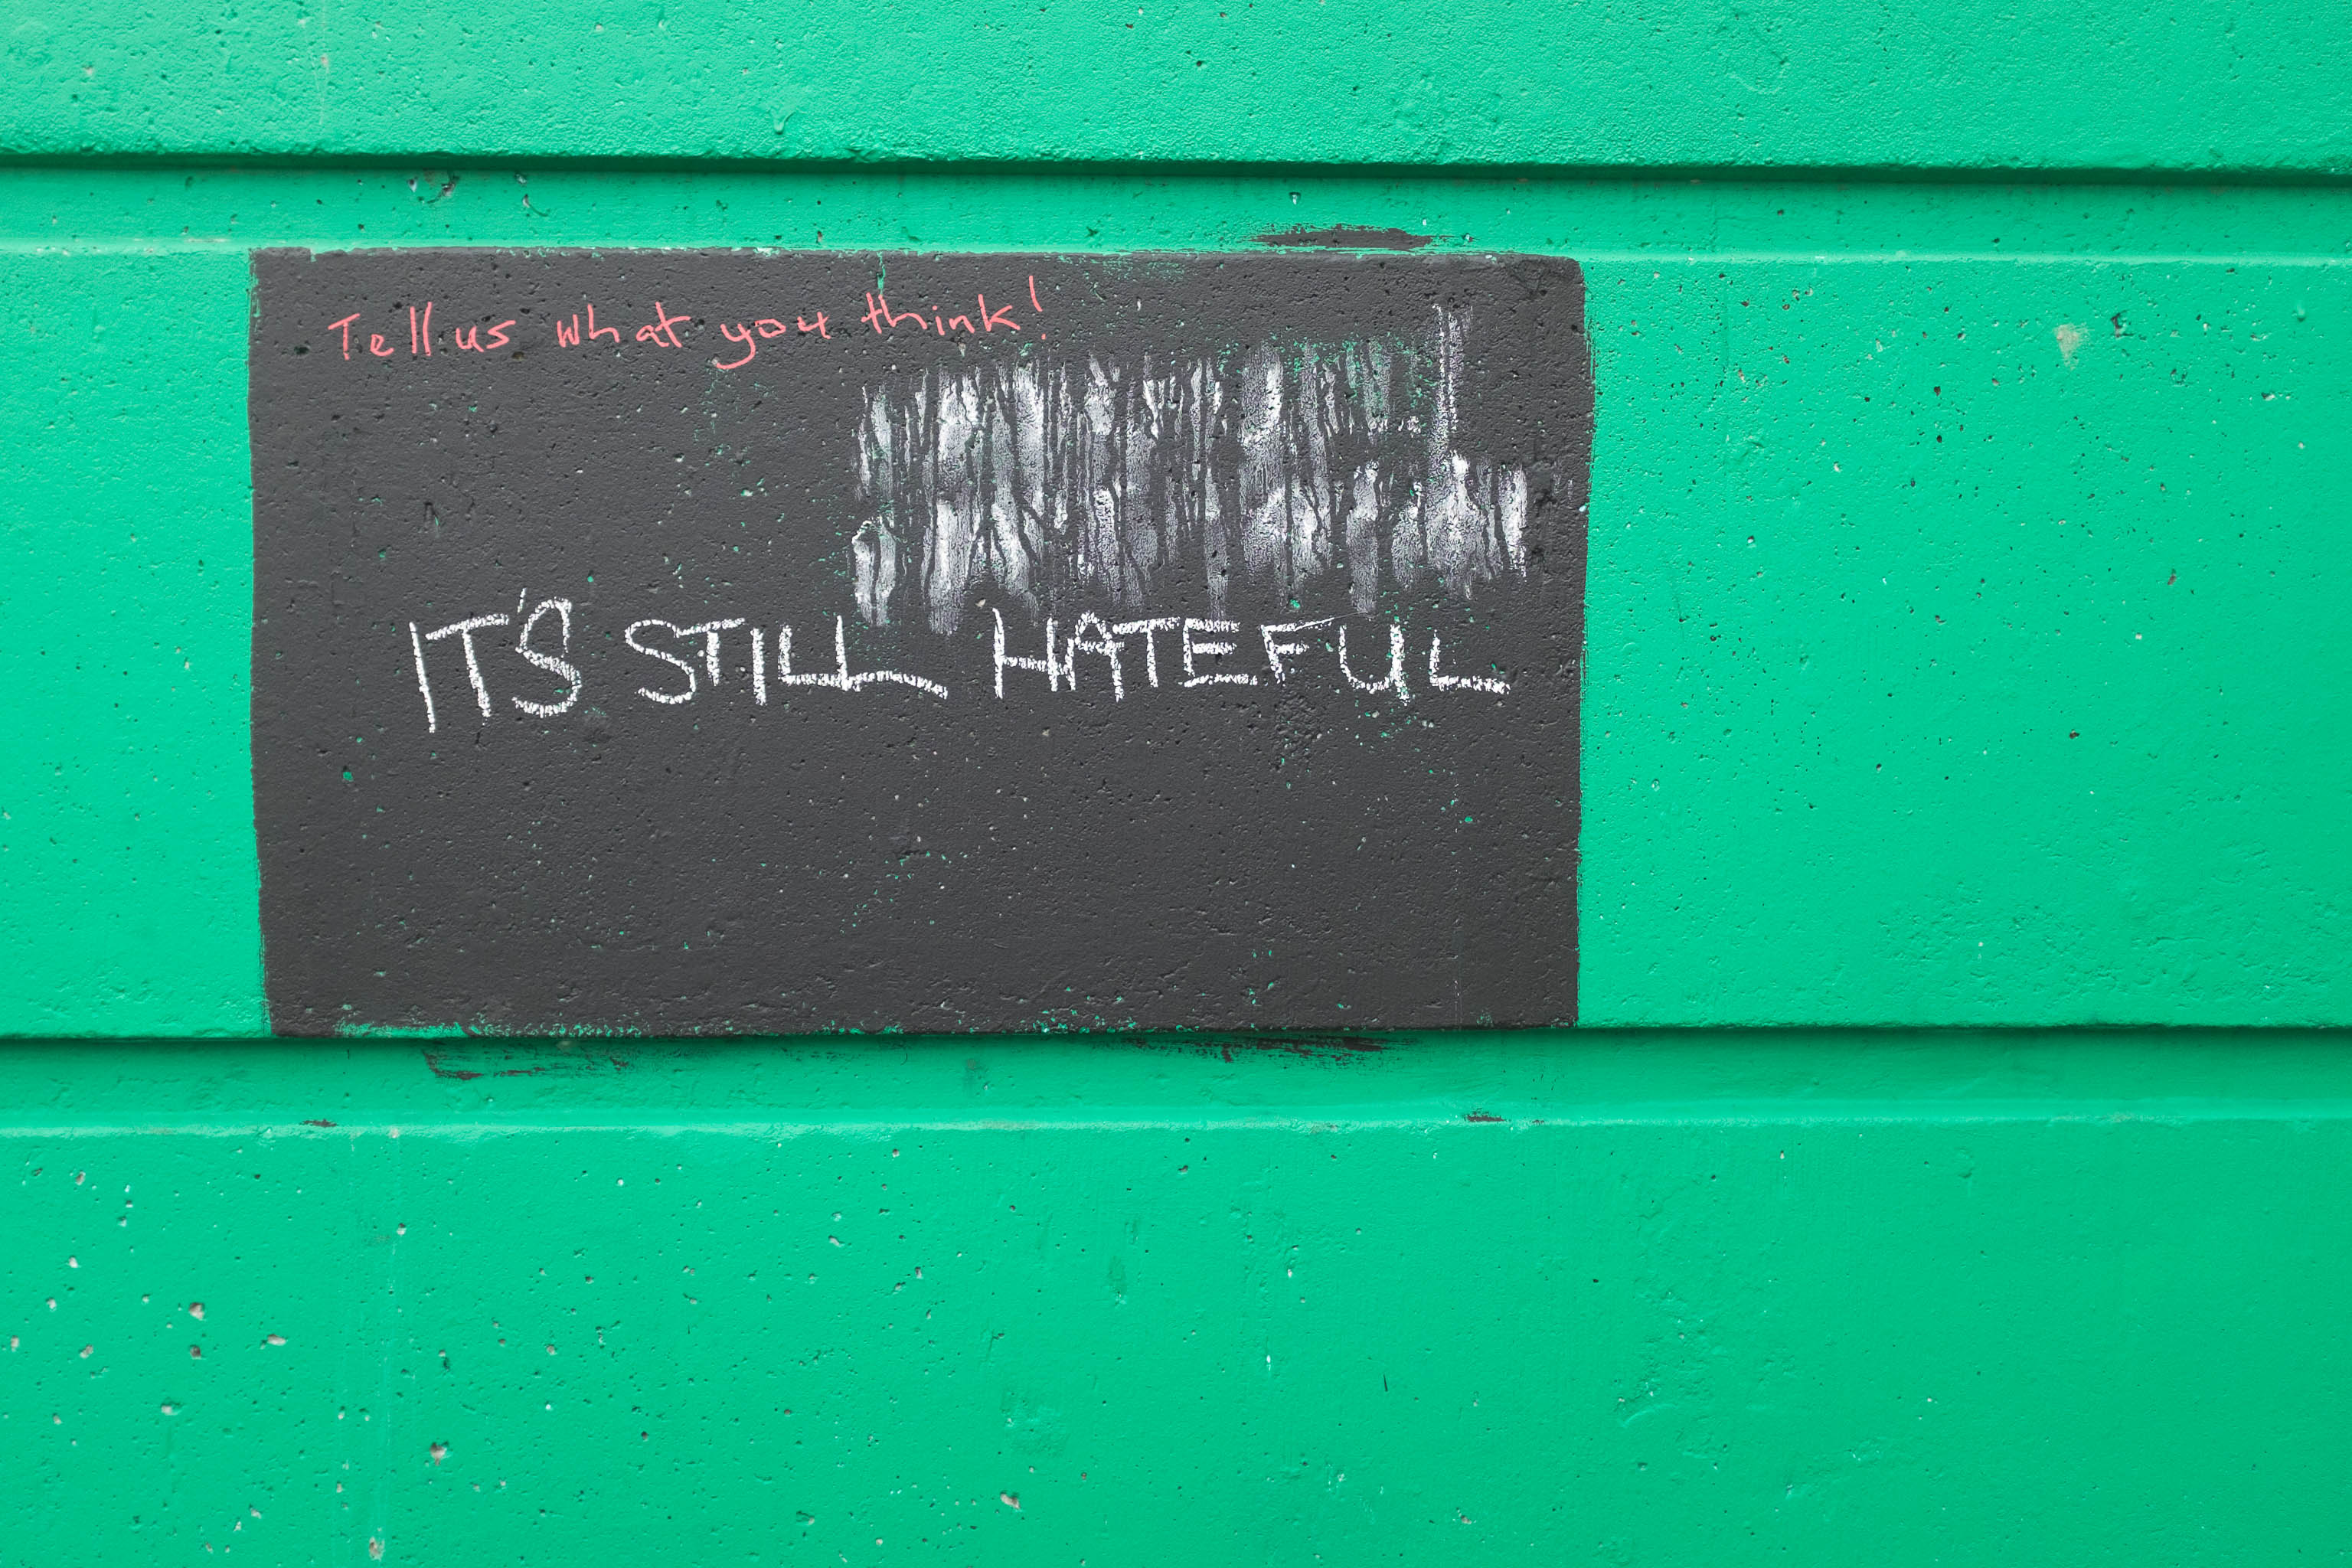 Tell us what you think!
IT'S STILL HATEFUL